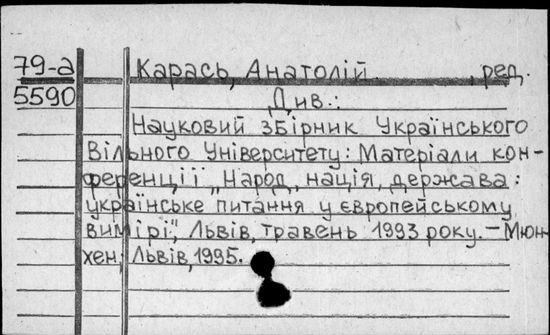 79-а Карась, Анатолій , ред.
5590 Див.:
Науковий збірник Українського
Вільного Університету: Матеріали кон-
ференції „Народ, нація, держава:
українське питання у європейському
вимірі", Львів, травень 1993 року. – Мюн-
хен; Львів, 1995.